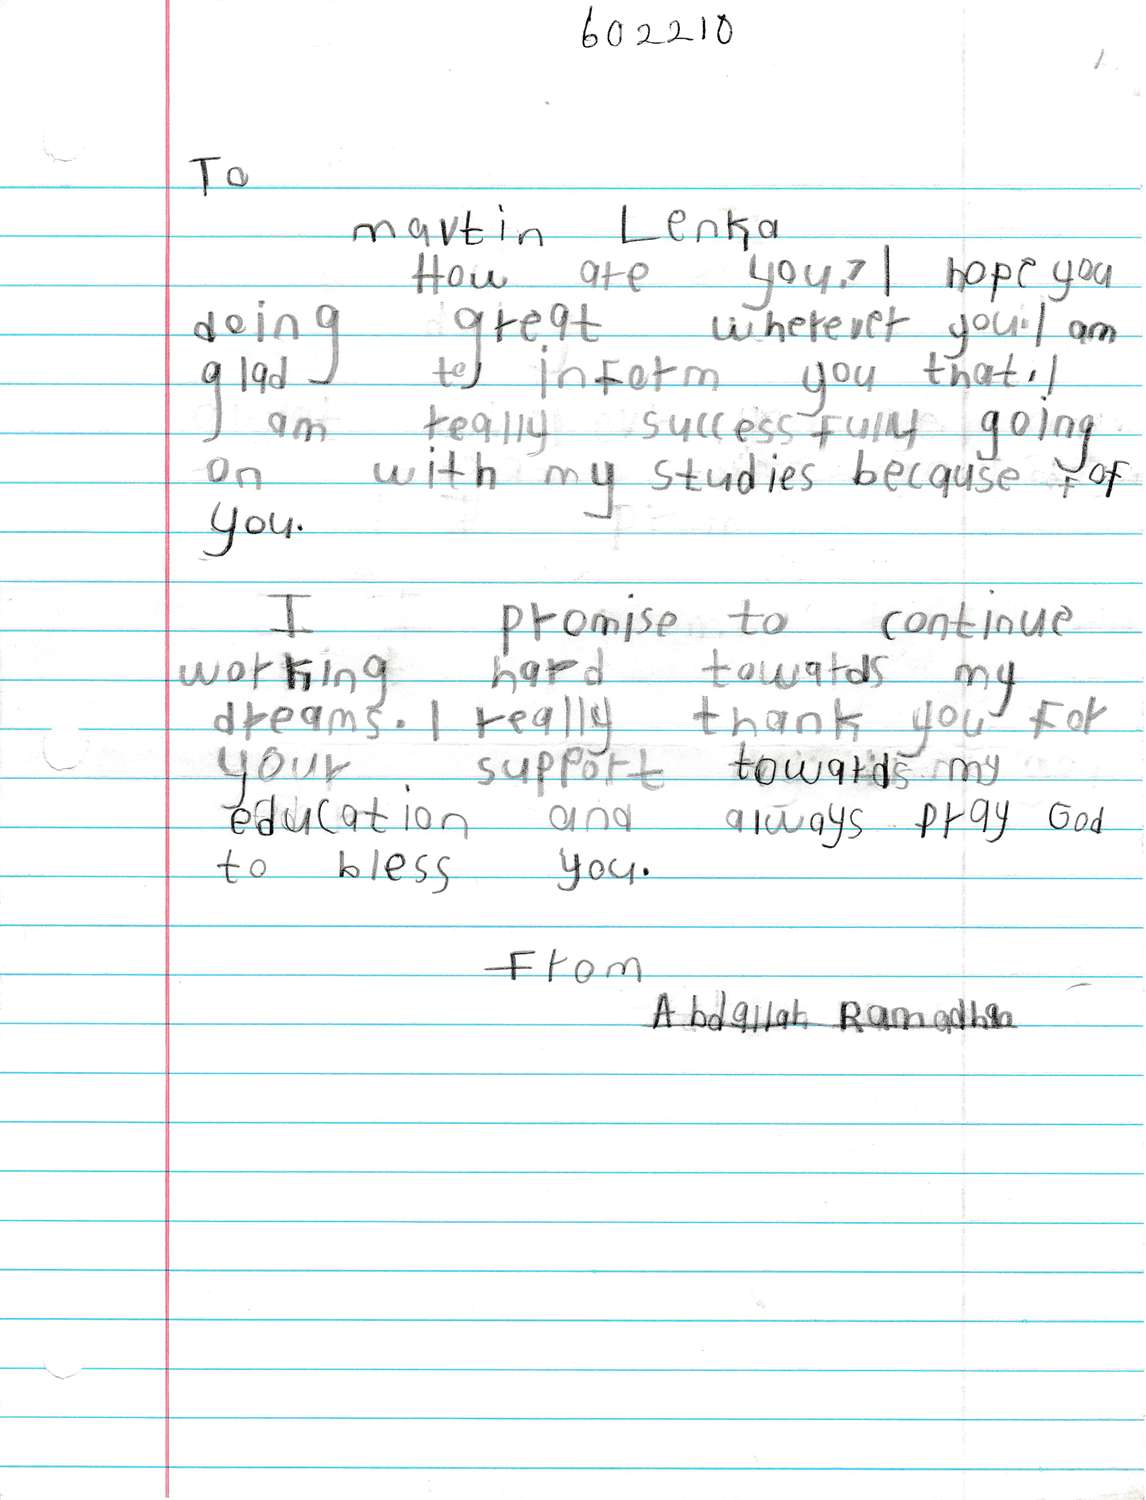 602210
To
martin Lenka
How are you? I hope you
doing great wherever you. I am
glad to inform you that. I
am really successfully going
on with my studies because of
you.
I promise to continue
working hard towards my
dreams. I really thank you for
your support towards my
education and always pray God
to bless you.
From
Abdallah Ramadhan